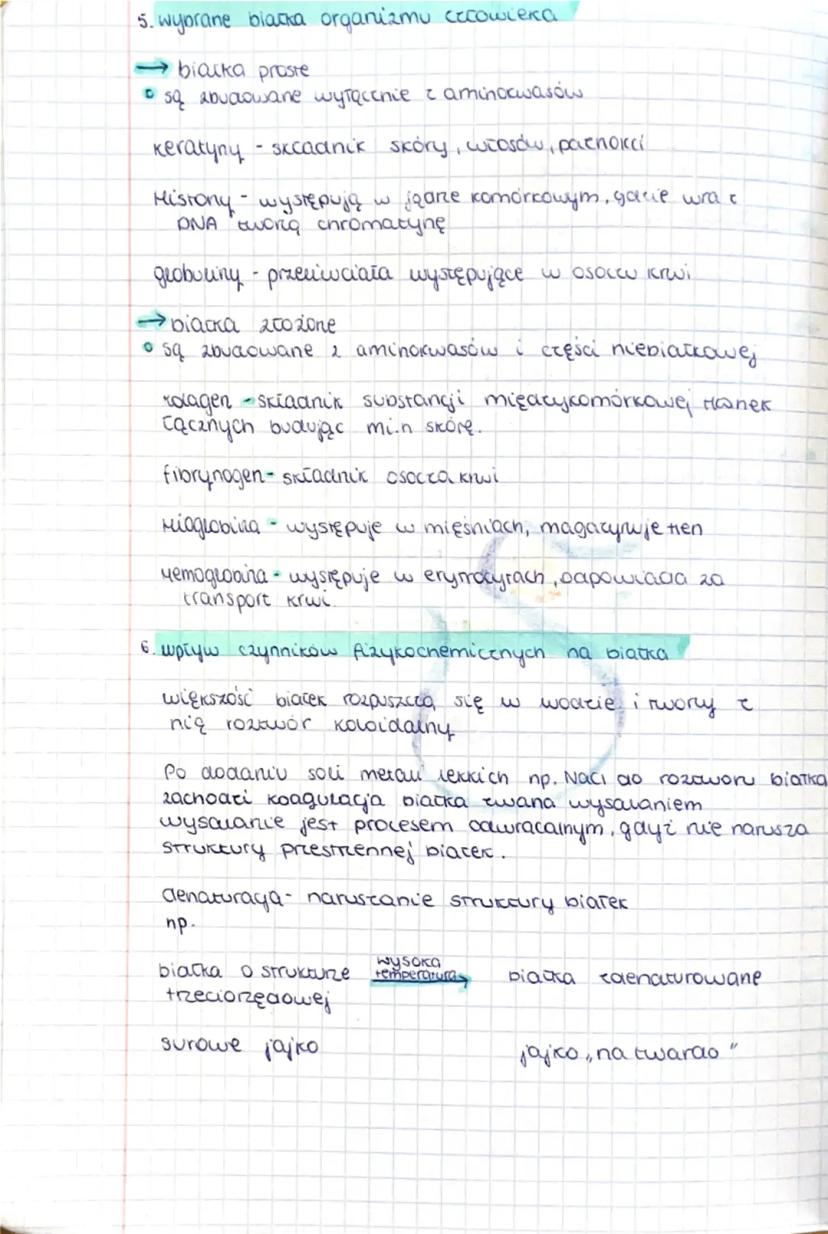 5. wybrane białka organizmu człowieka
→ białka proste
są zbudowane wyłącznie z aminokwasów
keratyny - składnik skóry, włosów, paznokci
Histony - występują w jądrze komórkowym, gdzie wra z
DNA tworzą chromatynę
globuliny - przeciwciała występujące w osoczu krwi
→ białka złożone
są zbudowane z aminokwasów i części niebiałkowej
kolagen - składnik substancji międzykomórkowej tkanek
łącznych budując mi.n skórę.
fibrynogen - składnik osocza krwi
Mioglobina - występuje w mięśniach, magazynuje tlen
Hemoglobina - występuje w erytrocytach, odpowiada za
transport krwi.
6. wpływ czynników fizykochemicznych na białka
większość białek rozpuszcza się w wodzie i tworzy z
nią roztwór koloidalny
Po dodaniu soli metali lekkich np. NaCl do roztworu białka
zachodzi koagulacja białka zwana wysalaniem
wysalanie jest procesem odwracalnym, gdyż nie narusza
struktury przestrzennej białek.
denaturacja - naruszanie struktury białek
np.
białka o strukturze wysoka temperatura → białka zdenaturowane
trzeciorzędowej
surowe jajko jajko „na twardo"